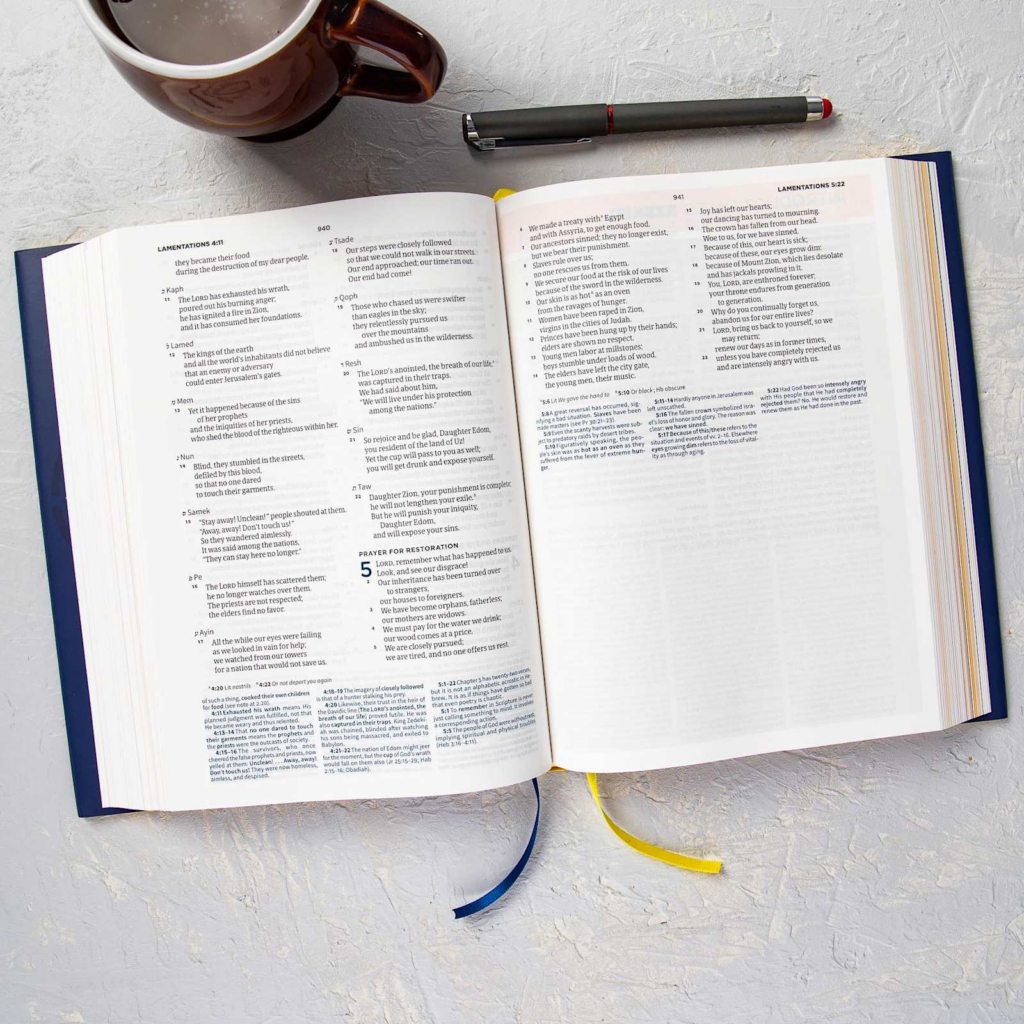 940
LAMENTATIONS 4:11
they became their food
during the destruction of my dear people.
כ Kaph
11 The LORD has exhausted his wrath,
poured out his burning anger;
he has ignited a fire in Zion,
and it has consumed her foundations.
ל Lamed
12 The kings of the earth
and all the world's inhabitants did not believe
that an enemy or adversary
could enter Jerusalem's gates.
מ Mem
13 Yet it happened because of the sins
of her prophets
and the iniquities of her priests,
who shed the blood of the righteous within her.
נ Nun
14 Blind, they stumbled in the streets,
defiled by this blood,
so that no one dared
to touch their garments.
ס Samek
15 "Stay away! Unclean!" people shouted at them.
"Away, away! Don't touch us!"
So they wandered aimlessly.
It was said among the nations,
"They can stay here no longer."
פ Pe
16 The LORD himself has scattered them;
he no longer watches over them.
The priests are not respected;
the elders find no favor.
ע Ayin
17 All the while our eyes were failing
as we looked in vain for help;
we watched from our towers
for a nation that would not save us.
צ Tsade
18 Our steps were closely followed
so that we could not walk in our streets.
Our end approached; our time ran out.
Our end had come!
ק Qoph
19 Those who chased us were swifter
than eagles in the sky;
they relentlessly pursued us
over the mountains
and ambushed us in the wilderness.
ר Resh
20 The LORD's anointed, the breath of our life,*
was captured in their traps.
We had said about him,
"We will live under his protection
among the nations."
ש Sin
21 So rejoice and be glad, Daughter Edom,
you resident of the land of Uz!
Yet the cup will pass to you as well;
you will get drunk and expose yourself.
ת Taw
22 Daughter Zion, your punishment is complete;
he will not lengthen your exile.*
But he will punish your iniquity,
Daughter Edom,
and will expose your sins.
PRAYER FOR RESTORATION
5 LORD, remember what has happened to us.
Look, and see our disgrace!
2 Our inheritance has been turned over
to strangers,
our houses to foreigners.
3 We have become orphans, fatherless;
our mothers are widows.
4 We must pay for the water we drink;
our wood comes at a price.
5 We are closely pursued;
we are tired, and no one offers us rest.
*4:20 Lit nostrils *4:22 Or not deport you again
of such a thing, cooked their own children
for food (see note at 2:20).
4:11 Exhausted his wrath means His
planned judgment was fulfilled, not that
He became weary and thus relented.
4:13-14 That no one dared to touch
their garments means the prophets and
the priests were the outcasts of society.
4:15-16 The survivors, who once
cheered the false prophets and priests, now
yelled at them: Unclean! . . . Away, away!
Don't touch us! They were now homeless,
aimless, and despised.
4:18-19 The imagery of closely followed
is that of a hunter stalking his prey.
4:20 Likewise, their trust in the heir of
the Davidic line (The LORD's anointed, the
breath of our life) proved futile. He was
also captured in their traps. King Zedeki-
ah was chained, blinded after watching
his sons being massacred, and exiled to
Babylon.
4:21-22 The nation of Edom might jeer
for the moment, but the cup of God's wrath
would fall on them also (Jr 25:15-29; Hab
2:15-16; Obadiah).
5:1-22 Chapter 5 has twenty-two verses,
but it is not an alphabetic acrostic in He-
brew. It is as if things have gotten so bad
that even poetry is chaotic.
5:1 To remember in Scripture is never
just calling something to mind. It involves
a corresponding action.
5:5 The people of God were without rest,
implying spiritual and physical trouble
(Heb 3:16-4:11).
941
LAMENTATIONS 5:22
6 We made a treaty with* Egypt
and with Assyria, to get enough food.
7 Our ancestors sinned; they no longer exist,
but we bear their punishment.
8 Slaves rule over us;
no one rescues us from them.
9 We secure our food at the risk of our lives
because of the sword in the wilderness.
10 Our skin is as hot* as an oven
from the ravages of hunger.
11 Women have been raped in Zion,
virgins in the cities of Judah.
12 Princes have been hung up by their hands;
elders are shown no respect.
13 Young men labor at millstones;
boys stumble under loads of wood.
14 The elders have left the city gate,
the young men, their music.
15 Joy has left our hearts;
our dancing has turned to mourning.
16 The crown has fallen from our head.
Woe to us, for we have sinned.
17 Because of this, our heart is sick;
because of these, our eyes grow dim:
18 because of Mount Zion, which lies desolate
and has jackals prowling in it.
19 You, LORD, are enthroned forever;
your throne endures from generation
to generation.
20 Why do you continually forget us,
abandon us for our entire lives?
21 LORD, bring us back to yourself, so we
may return;
renew our days as in former times,
22 unless you have completely rejected us
and are intensely angry with us.
*5:6 Lit We gave the hand to *5:10 Or black; Hb obscure
5:8 A great reversal has occurred, sig-
nifying a bad situation. Slaves have been
made masters (see Pr 30:21-23).
5:9 Even the scanty harvests were sub-
ject to predatory raids by desert tribes.
5:10 Figuratively speaking, the peo-
ple's skin was as hot as an oven as they
suffered from the fever of extreme hun-
ger.
5:11-14 Hardly anyone in Jerusalem was
left unscathed.
5:16 The fallen crown symbolized Isra-
el's loss of honor and glory. The reason was
clear: we have sinned.
5:17 Because of this/these refers to the
situation and events of vv. 2-16. Elsewhere
eyes growing dim refers to the loss of vital-
ity as through aging.
5:22 Had God been so intensely angry
with His people that He had completely
rejected them? No. He would restore and
renew them as He had done in the past.